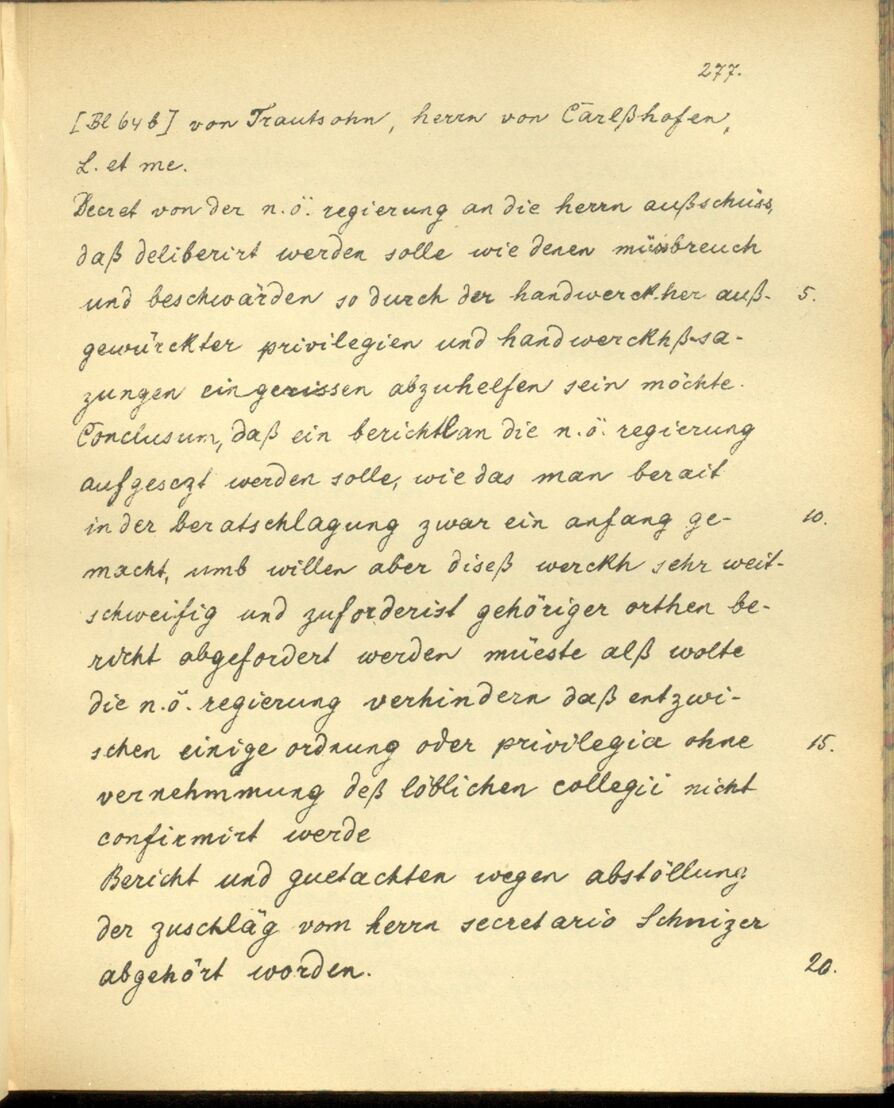 277.
[Bl 64 b] von Trautsohn, herrn von Carlßhofen,
L. et me.
Decret von der n.ö. regierung an die herrn außschüss,
daß deliberirt werden solle wie denen müssbreuch
und beschwärden so durch der handwerckher auß- 5.
gewürckter privilegien und handwerckhß-sa-
zungen eingerissen abzuhelfen sein möchte.
Conclusum, daß ein berichtl an die n.ö. regierung
aufgesezt werden solle, wie das man berait
in der beratschlagung zwar ein anfang ge- 10.
macht, umb willen aber diseß werckh sehr weit-
schweifig und zuforderist gehöriger orthen be-
richt abgefordert werden müeste alß wolte
die n.ö. regierung verhindern daß entzwi-
schen einige ordnung oder privilegia ohne 15.
vernehmmung deß löblichen collegii nicht
confirmirt werde
Bericht und guetachten wegen abstöllung
der zuschläg vom herrn secretario Schnizer
abgehört worden. 20.